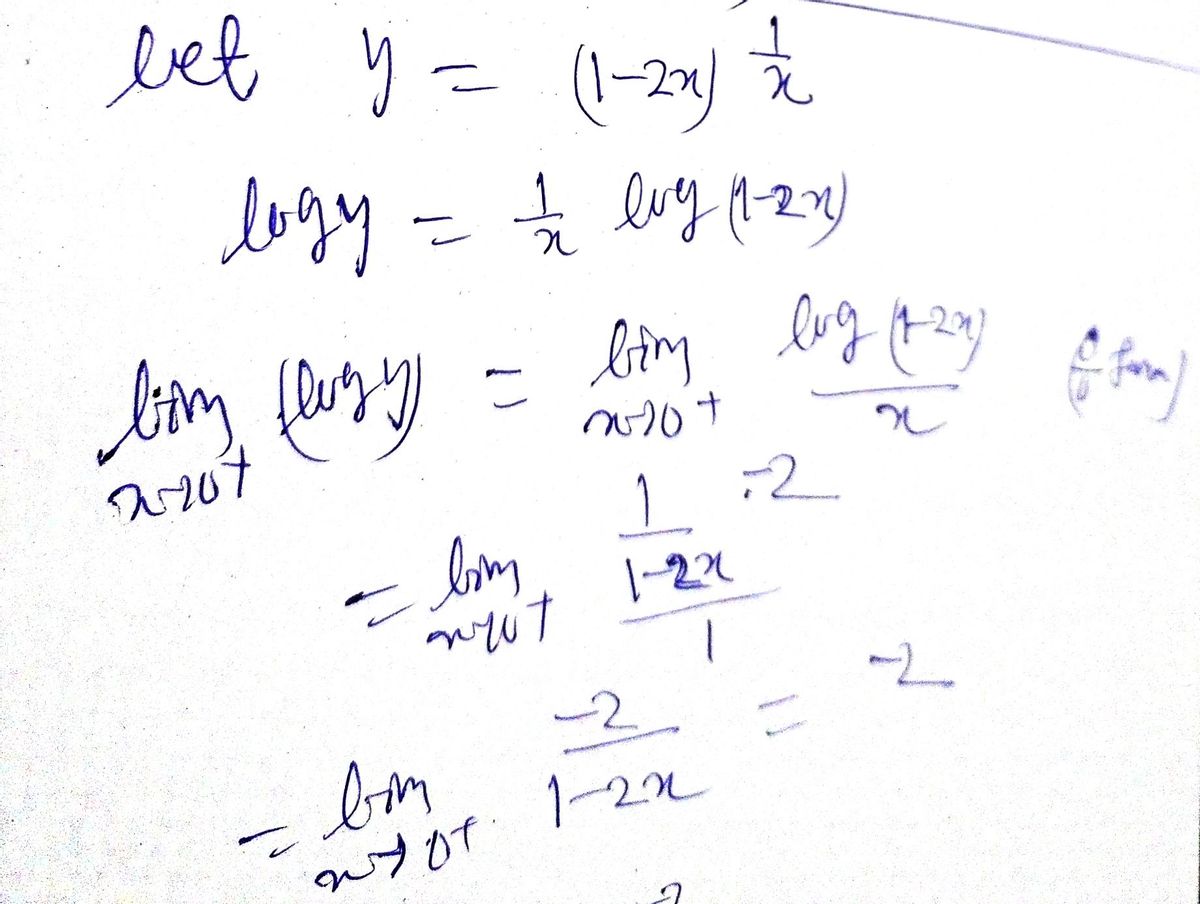 let y = (1-2x)^{1/x}
log y = 1/x log (1-2x)
lim_{x→0+} (log y) = lim_{x→0+} log (1-2x) / x (0/0 form)
= lim_{x→0+} (1/(1-2x) · -2) / 1
= lim_{x→0+} -2/(1-2x) = -2